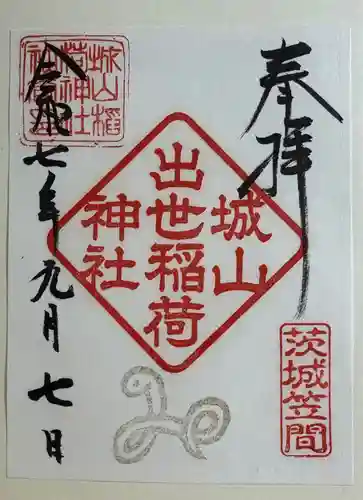 奉拝
茨城笠間
城山
出世稲荷
神社
城山稲
荷神社
令和七年元月七日